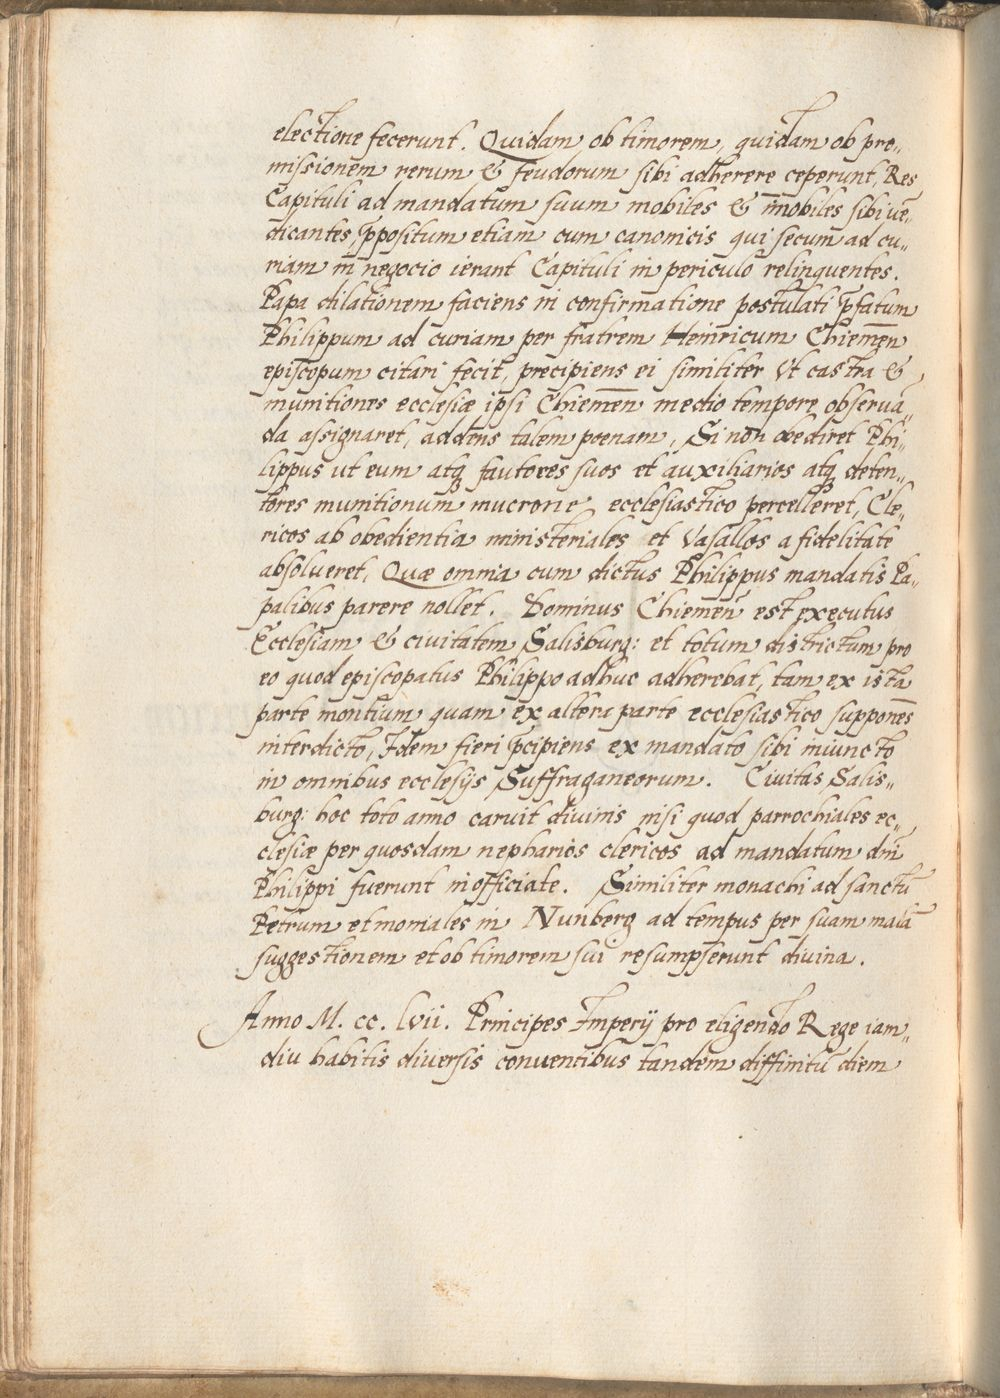 electione fecerunt. Quidam ob timorem, quidam ob pro„
missionem rerum & feudorum sibi adherere ceperunt, Res
Capituli ad mandatum suum mobiles & im̄obiles sibi ve„
dicantes, p̄positum etiam cum canonicis qui secum ad cu„
riam in negocio ierant Capituli in periculo relinquentes.
Papa dilationem faciens in confirmatione postulati p̄fatum
Philippum ad curiam per fratrem Heinricum Chiemen̄
episcopum citari fecit, precipiens ei similiter Vt castra &
munitiones ecclesiæ ipsi Chiemen̄ medio tempore observā„
da assignaret, addens talem poenam, Si non obediret Phi„
lippus ut eum atq̨ fautores suos et auxiliarios atq̨ deten„
tores munitionum mucrone ecclesiastico percelleret, Cle„
ricos ab obedientia ministeriales et Vasallos a fidelitate
absolueret, Quæ omnia cum dictus Philippus mandatis Pa„
palibus parere nollet. Dominus Chiemen̄ est executus
Ecclesiam & ciuitatem Salisburg: et totum districtum pro
eo quod episcopatus Philippo adhuc adherebat, tam ex ista
parte montium quam ex altera parte ecclesiastico suppones̄
interdicto, Idem fieri p̄cipiens ex mandato sibi iniuncto
in omnibus ecclesijs Suffraganeorum. Ciuitas Salis„
burg: hoc toto anno caruit diuinis nisi quod parrochiales ec„
clesiæ per quosdam nepharios clericos ad mandatum dn̄i
Philippi fuerunt inofficiate. Similiter monachi ad sanctū
Petrum et moniales in Nunberg ad tempus per suam malā
suggestionem et ob timorem sui resumpserunt diuina.
Anno M. cc. lvii. Principes Imperij pro eligendo Rege iam„
diu habitis diuersis conuentibus tandem diffinitū diem